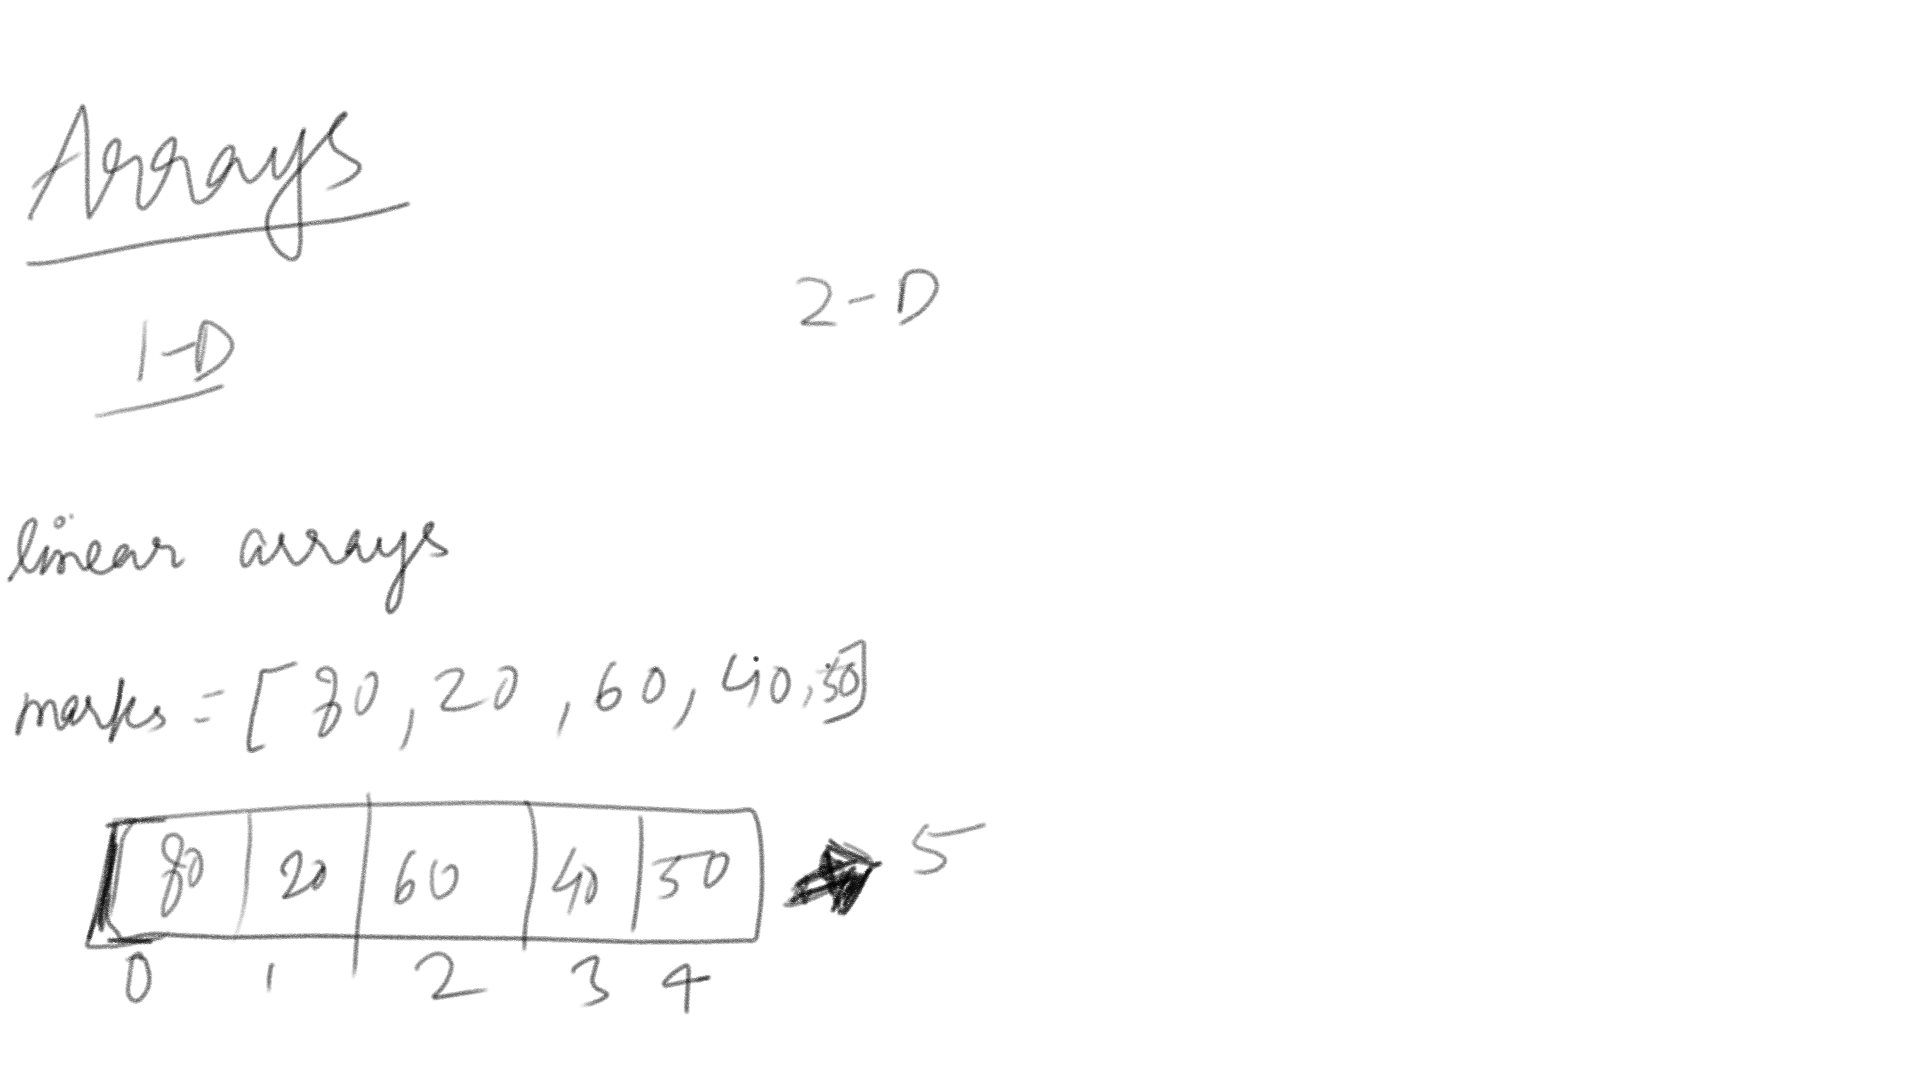 Arrays
1-D
2-D
linear arrays
marks = [80, 20, 60, 40, 50]
80 20 60 40 50 5
0 1 2 3 4